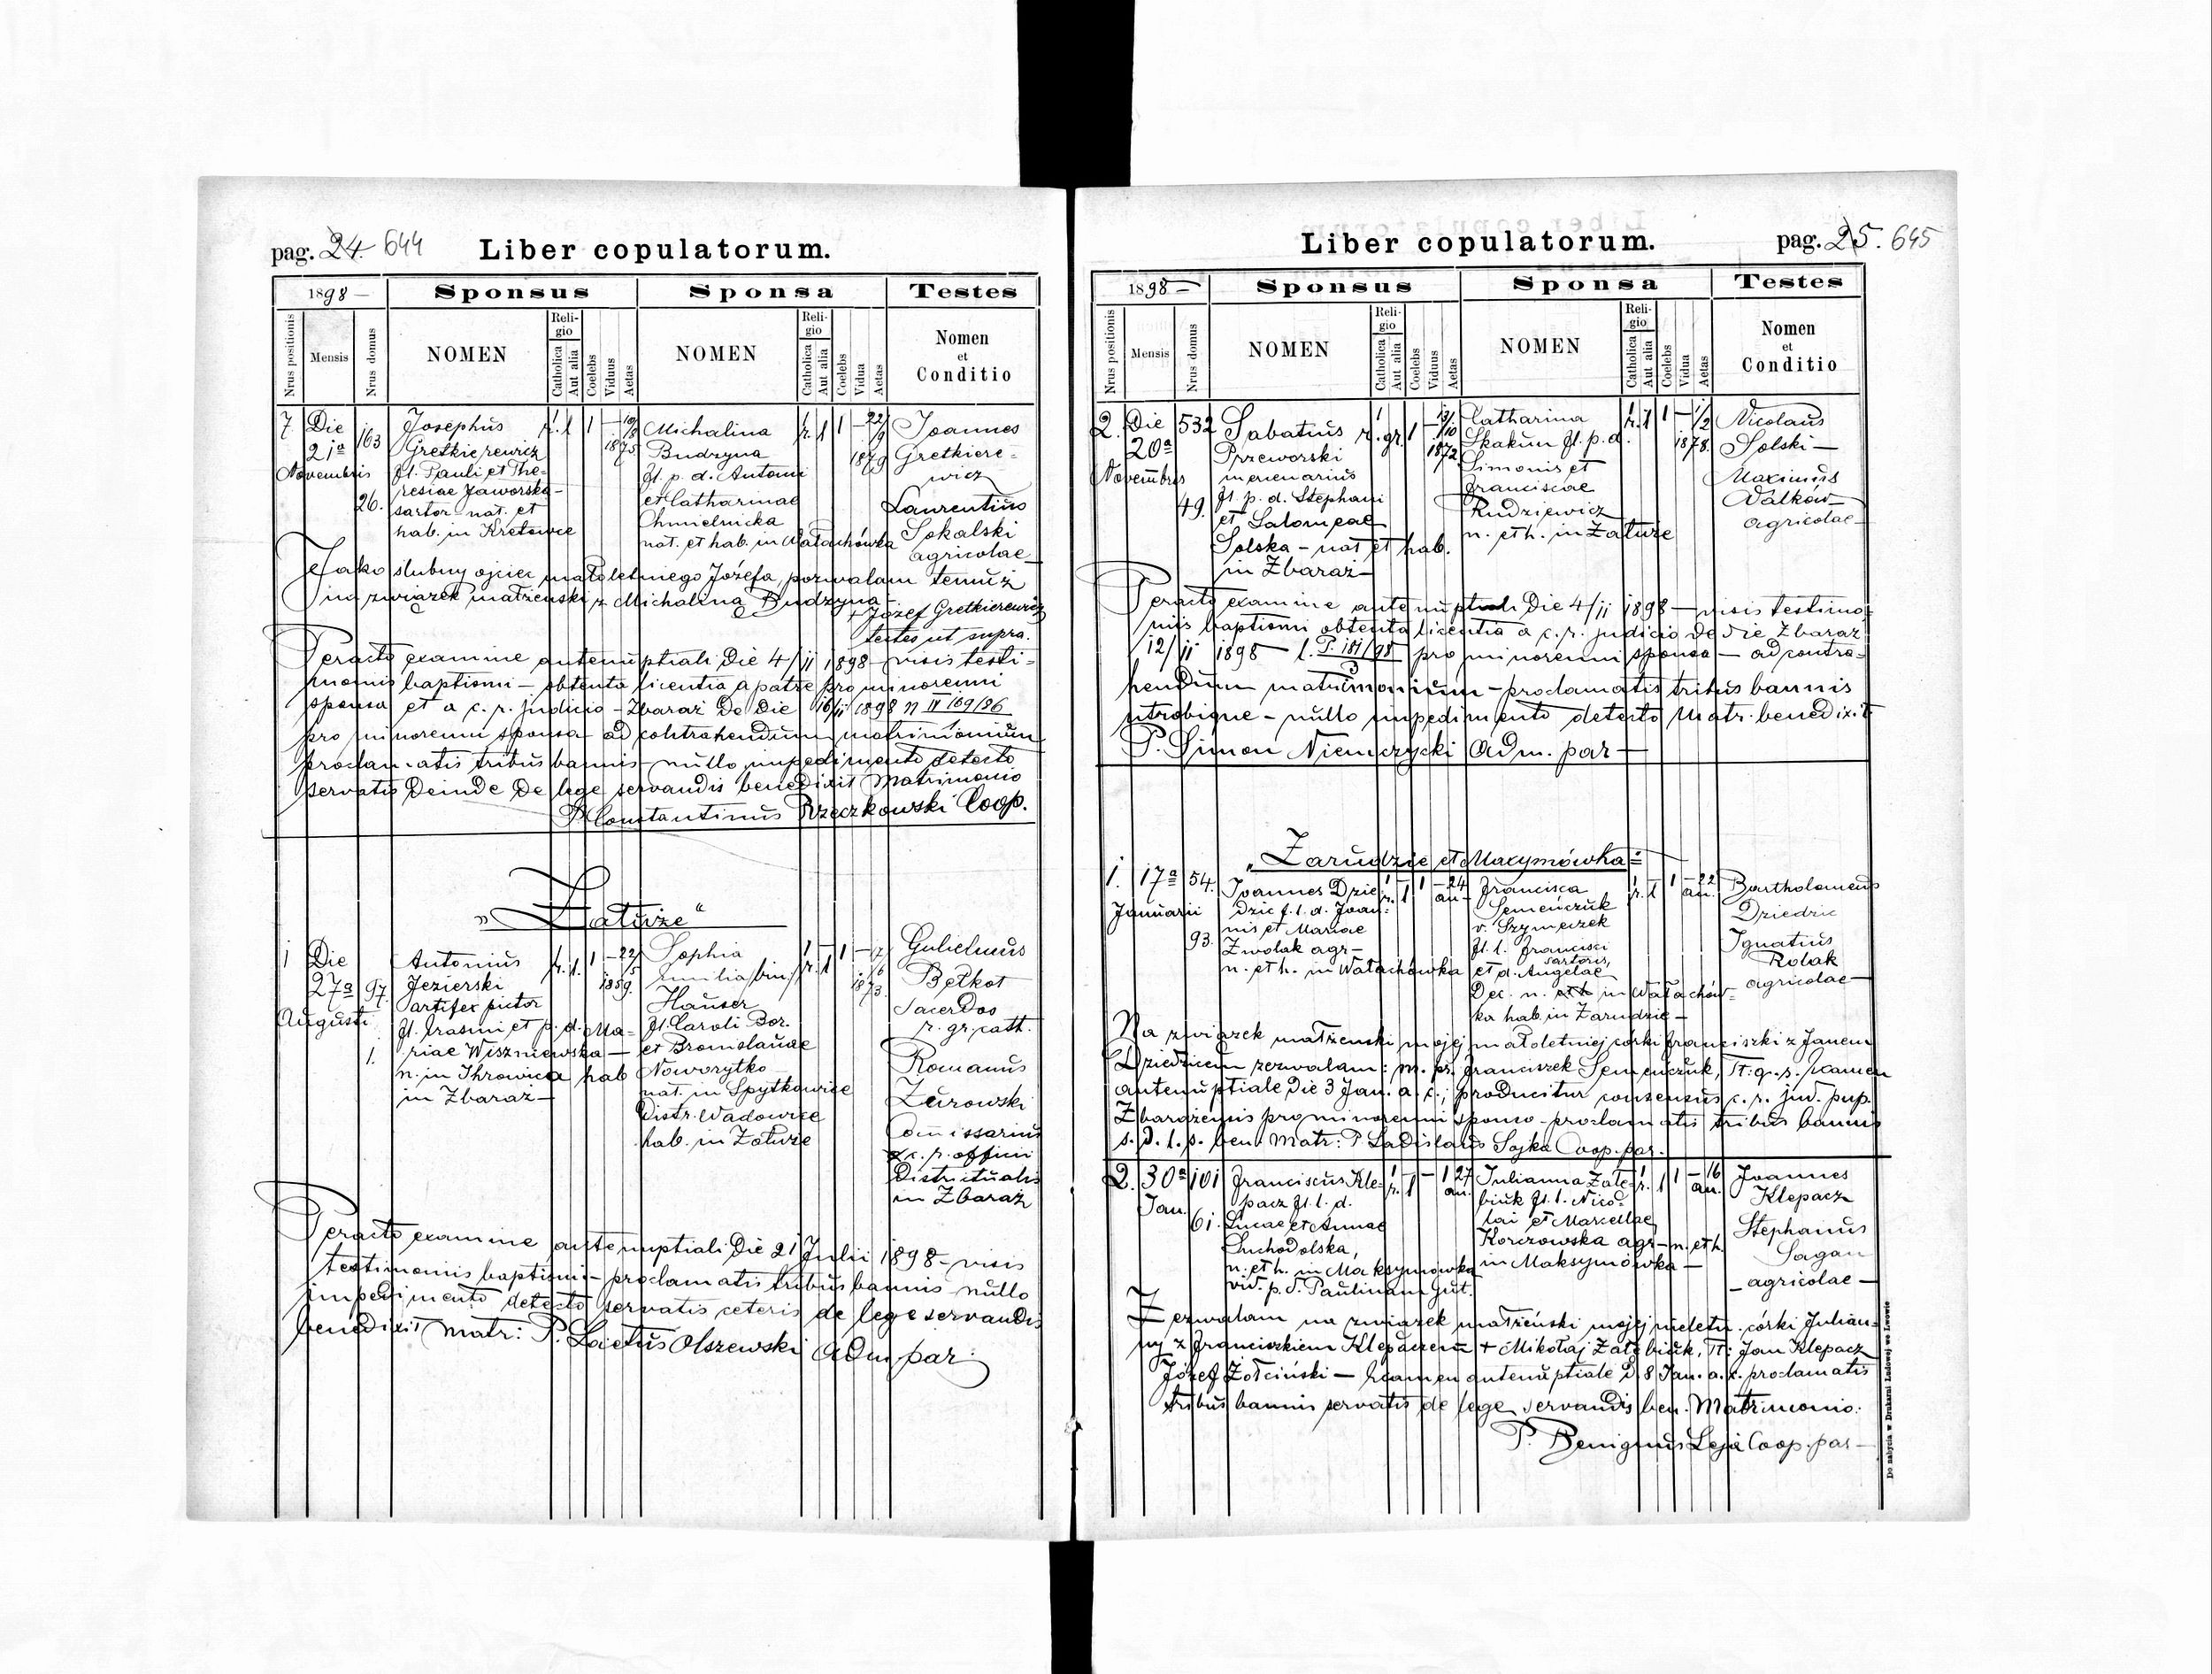 pag. 24. 644
Liber copulatorum.
1898 —
Sponsus
Sponsa
Testes
Nrus positionis
Mensis
Nrus domus
NOMEN
Religio
Catholica
Aut alia
Coelebs
Viduus
Aetas
NOMEN
Religio
Catholica
Aut alia
Coelebs
Vidua
Aetas
Nomen
et
Conditio
7. Die
21a
Novembris
163
26.
Josephus
Gretkierewicz
fl. Pauli et The-
resiae Jaworska-
sartor nat. et
hab. in Kretowce
r. l
1
—
19/8
1875
Michalina
Budzyna
fl. p. d. Antoni
et Catharinae
Chmielnicka
nat. et hab. in Wałachówka
r. l
1
—
22/9
1879
Joannes
Gretkiere-
wicz
Laurentius
Sokalski
agricolae
Jako ślubny ojciec małoletniego Józefa, pozwalam temuż
na związek małżeński z Michaliną Budzyna —
+ Józef Gretkierewicz
testes ut supra.
Peracto examine antenuptiali Die 4/11 1898 — visis testi-
moniis baptismi — obtenta licentia a patre pro minorenni
sponso et a c. r. judicio — Zbaraż De Die 16/11 1898 n IV 169/96
pro minorenni sponsa ad contrahendum matrimonium
proclamatis tribus bannis — nullo impedimento detecto
servatis Deinde De lege servandis benedixit Matrimonio
P. Constantinus Rzeczkowski Coop.
„Załuże“
1 Die
27a
Augusti
97.
1.
Antonius
Jezierski
artifex pictor
fl. Erasmi et p. d. Ma-
riae Wiszniewska —
n. in Ihrowica hab
in Zbaraż —
r. l.
1
—
22/5
1859.
Sophia
Emilia /bin./
Hauser
fl. Caroli Bor.
et Bronislauae
Noworytko
nat. in Spytkowice
Distr. Wadowice
hab. in Załuże
r. l
1
—
17/6
1873.
Gulielmus
Bełkot
Sacerdos
r. gr. cath.
Romanus
Żurowski
Comissarius
c. r. officii
Districtualis
in Zbaraż
Peracto examine antenuptiali Die 21 Julii 1898 — visis
testimoniis baptismi — proclamatis tribus bannis nullo
impedimento detecto servatis ceteris de lege servandis
benedixit Matr: P. Laetus Olszewski Adm. par.
pag. 25. 645
Liber copulatorum.
1898 —
Sponsus
Sponsa
Testes
Nrus positionis
Mensis
Nrus domus
NOMEN
Religio
Catholica
Aut alia
Coelebs
Viduus
Aetas
NOMEN
Religio
Catholica
Aut alia
Coelebs
Vidua
Aetas
Nomen
et
Conditio
2. Die
20a
Novembris
532
49.
Sabatius
Przeworski
mercenarius
fl. p. d. Stephani
et Salomeae
Solska — nat et hab.
in Zbaraż —
r. gr.
1
—
13/10
1872
Catharina
Skakun fl. p. d.
Simonis et
Franciscae
Rudziewicz
n. et h. in Załuże
r. l
1
—
1/2
1878.
Nicolaus
Solski —
Maximus
Wałków
agricolae —
Peracto examine antenuptiali Die 4/11 1898 — visis testimo-
niis baptismi obtenta licentia a c. r. judicio de die Zbaraż
12/11 1898 — l. P. 181/98 pro minorenni sponsa — ad contra-
hendum matrimonium — proclamatis tribus bannis
utrobique — nullo impedimento detecto Matr. benedixit
P. Simon Niemczycki Adm. par —
„Zarudzie et Maxymówka“
1. 17a
Januarii
54.
93.
Joannes Dzie-
dzic f. l. d. Joan-
nis et Mariae
Zwolak agr —
n. et h. in Wałachówka
r. l
1
—
24
an —
Francisca
Semeńczuk
v. Szymeczek
fl. l. Francisci
sartoris,
et d. Angelae
Dec. n. in Wałachów-
ka hab. in Zarudzie —
r. l
1
—
22
an.
Bartholomeus
Dziedzic
Ignatius
Rolak
agricolae —
Na związek małżeński mojej małoletniej córki Franciszki z Janem
Dziedzicem zezwalam: m. pr. Franciszek Semeńczuk, TT: q. s. Examen
antenuptiale Die 3 Jan. a. c.; producitur consensus c. r. jud. pup.
Zbarażensis pro minorenni sponso — proclamatis tribus bannis
s. d. l. s. ben. Matr: P Ladislaus Sojka Coop. par.
2. 30a
Jan.
101
61.
Franciscus Kle-
pacz fl. l. d.
Lucae et Annae
Suchodolska,
n. et h. in Maksymówka
vid. p. d. Paulinam Gut.
r. l
—
1
27
an.
Julianna Załę-
biuk fl. l. Nico-
lai et Marcellae
Korczowska agr — n. et h.
in Maksymówka —
r. l
1
—
16
an.
Joannes
Klepacz
Stephanus
Sagan
— agricolae —
Zezwalam na związek małżeński mojej nieletn. córki Julian-
ny z Franciszkiem Klepaczem + Mikołaj Załębiuk, TT: Jan Klepacz
Józef Żołciński — Examen antenuptiale D. 8 Jan. a. c. proclamatis
tribus bannis servatis de lege servandis ben. Matrimonio:
P. Benignus Leja Coop. par —
Do nabycia w Drukarni Ludowej we Lwowie